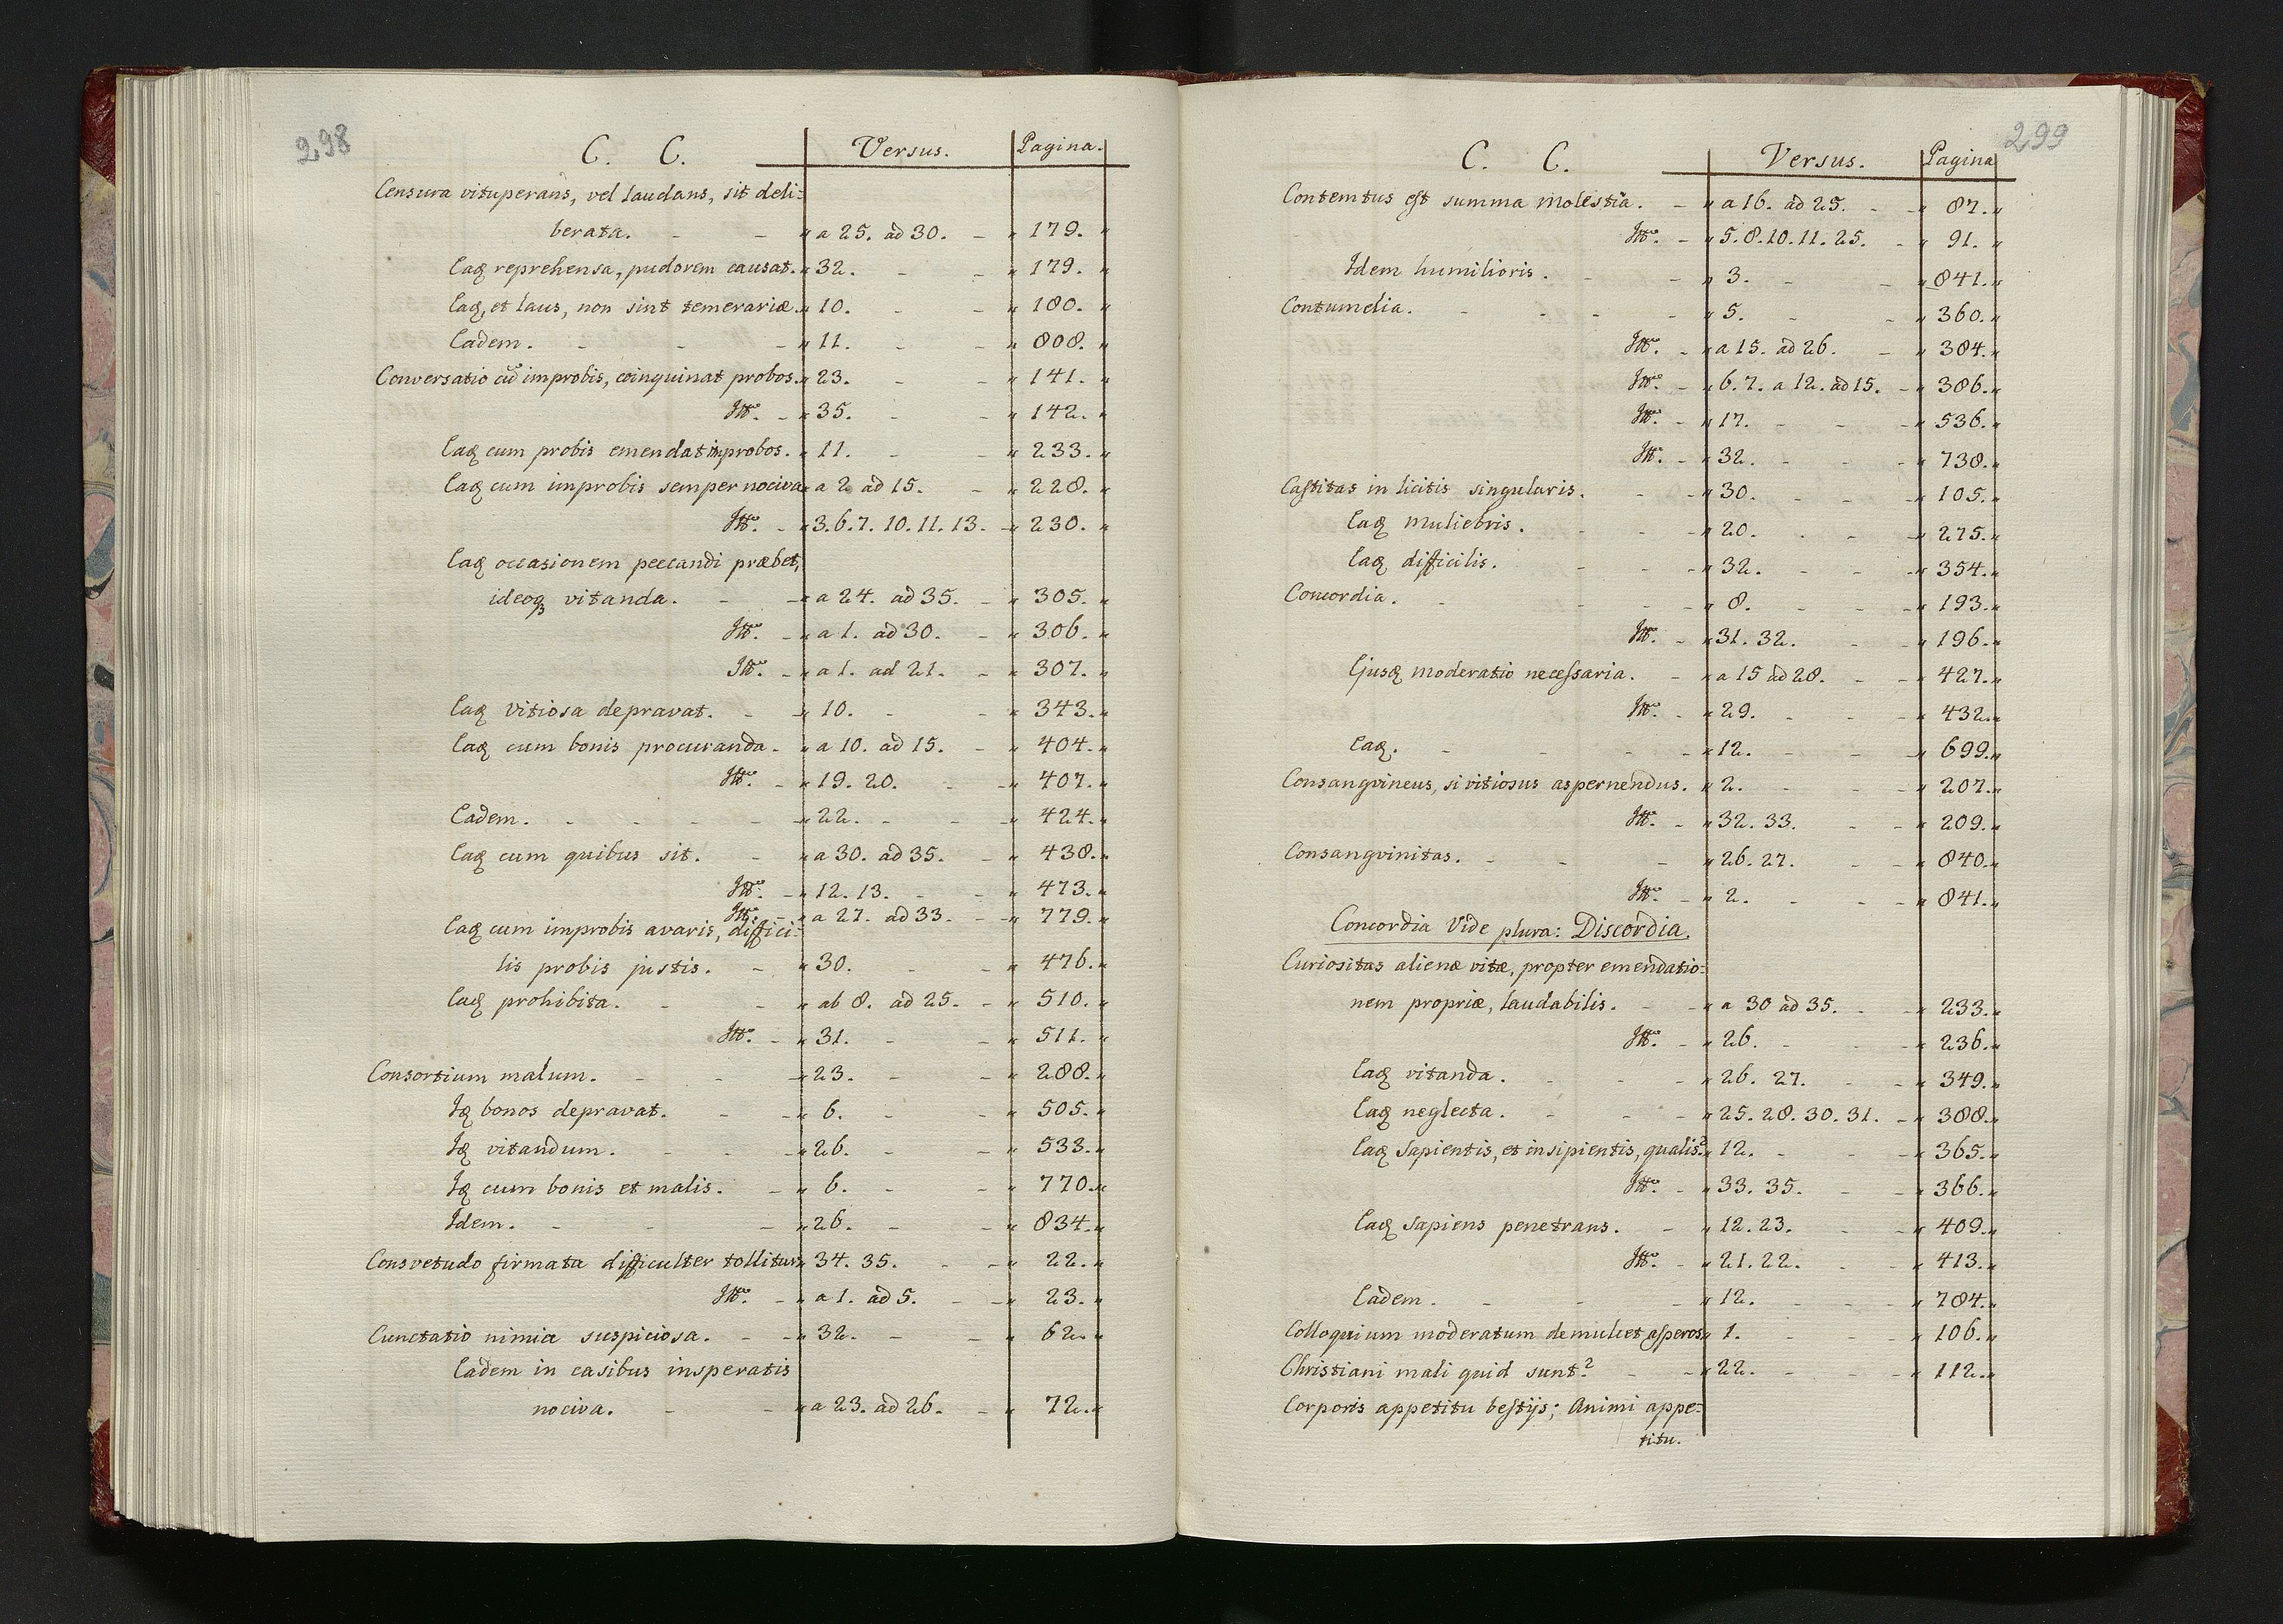 298
C. C. Versus. Pagina.
Censura vituperans, vel laudans, sit deli=
berata. - - " a 25. ad 30. - " 179. "
Eaq reprehensa, pudorem causat. " 32. - - " 179. "
Eaq, et laus, non sint temerariæ. " 10. - - " 180. "
Eadem. - - - " 11. - - " 808. "
Conversatio cũ improbis, coinquinat probos. " 23. - - " 141. "
Itẽ. - " 35. - - " 142. "
Eaq cum probis emendat improbos. " 11. - - " 233. "
Eaq cum improbis semper nociva " a 2 ad 15. - " 228. "
Itẽ. - " 3. 6. 7. 10. 11. 13. - " 230. "
Eaq occasionem peccandi præbet,
ideoq vitanda. - - " a 24. ad 35. - " 305. "
Itẽ. - " a 1. ad 30. - " 306. "
Itẽ. - " a 1. ad 21. - " 307. "
Eaq vitiosa depravat. - - " 10. - - " 343. "
Eaq cum bonis procuranda - " a 10. ad 15. - " 404. "
Itẽ. - " 19. 20. - - " 407. "
Eadem. - - - - - " 22. - - " 424. "
Eaq cum quibus sit. - " a 30. ad 35. - " 438. "
Itẽ. - " 12. 13. - - " 473. "
Itẽ. - " a 27. ad 33. - " 779. "
Eaq cum improbis avaris, diffici=
lis probis justis. - " 30. - - " 476. "
Eaq prohibita. - - " ab 8. ad 25. - " 510. "
Itẽ. - " 31. - - " 511. "
Consortium malum. - - " 23. - - " 288. "
Iq bonos depravat. - - " 6. - - " 505. "
Iq vitandum. - - - " 26. - - " 533. "
Iq cum bonis et malis. - " 6. - - " 770. "
Idem. - - - " 26. - - " 834. "
Consvetudo firmata difficulter tollitur " 34. 35. - - " 22. "
Itẽ. - " a 1. ad 5. - - " 23. "
Cunctatio nimia suspiciosa. - - " 32. - - " 62. "
Eadem in casibus insperatis
nociva. - - " a 23. ad 26. - " 72. "
299
C. C. Versus. Pagina
Contemtus est summa molestia. - " a 16. ad 25. - - " 87. "
Itẽ. - " 5. 8. 10. 11. 25. - " 91. "
Idem humilioris. - - " 3. - - " 841. "
Contumelia. - - - - " 5. - - " 360. "
Itẽ. - " a 15. ad 26. - " 384. "
Itẽ. - " 6. 7. a 12. ad 15. - " 386. "
Itẽ. - " 17. - - - " 536. "
Itẽ. - " 32. - - - " 738. "
Castitas in licitis singularis. - - " 30. - - - " 105. "
Eaq muliebris. - - - " 20. - - - " 275. "
Eaq difficilis. - - - " 32. - - - " 354. "
Concordia. - - - - " 8. - - - " 193. "
Itẽ. - " 31. 32. - - " 196. "
Ejusq moderatio necessaria. - " a 15 ad 28. - - " 427. "
Itẽ. - " 29. - - - " 432. "
Eaq. - - - - " 12. - - - " 699. "
Consangvineus, si vitiosus aspernendus. " 2. - - - " 207. "
Itẽ. - " 32. 33. - - " 209. "
Consangvinitas. - - - " 26. 27. - - " 840. "
Itẽ. - " 2. - - - " 841. "
Concordia Vide plura: Discordia.
Curiositas alienæ vitæ, propter emendatio=
nem propriæ, laudabilis. - - " a 30 ad 35. - - " 233. "
Itẽ. - " 26. - - - " 236. "
Eaq vitanda. - - - " 26. 27. - - " 349. "
Eaq neglecta. - - - " 25. 28. 30. 31. - " 388. "
Eaq sapientis, et insipientis, qualis? " 12. - - - " 365. "
Itẽ. - " 33. 35. - - " 366. "
Eaq sapiens penetrans. - " 12. 23. - - " 409. "
Itẽ. - " 21. 22. - - " 413. "
Eadem. - - - " 12. - - - " 784. "
Colloquium moderatum demulcet asperos " 1. - - - " 106. "
Christiani mali quid sunt? - - " 22. - - - " 112. "
Corporis appetitu bestijs; Animi appe=
titu.